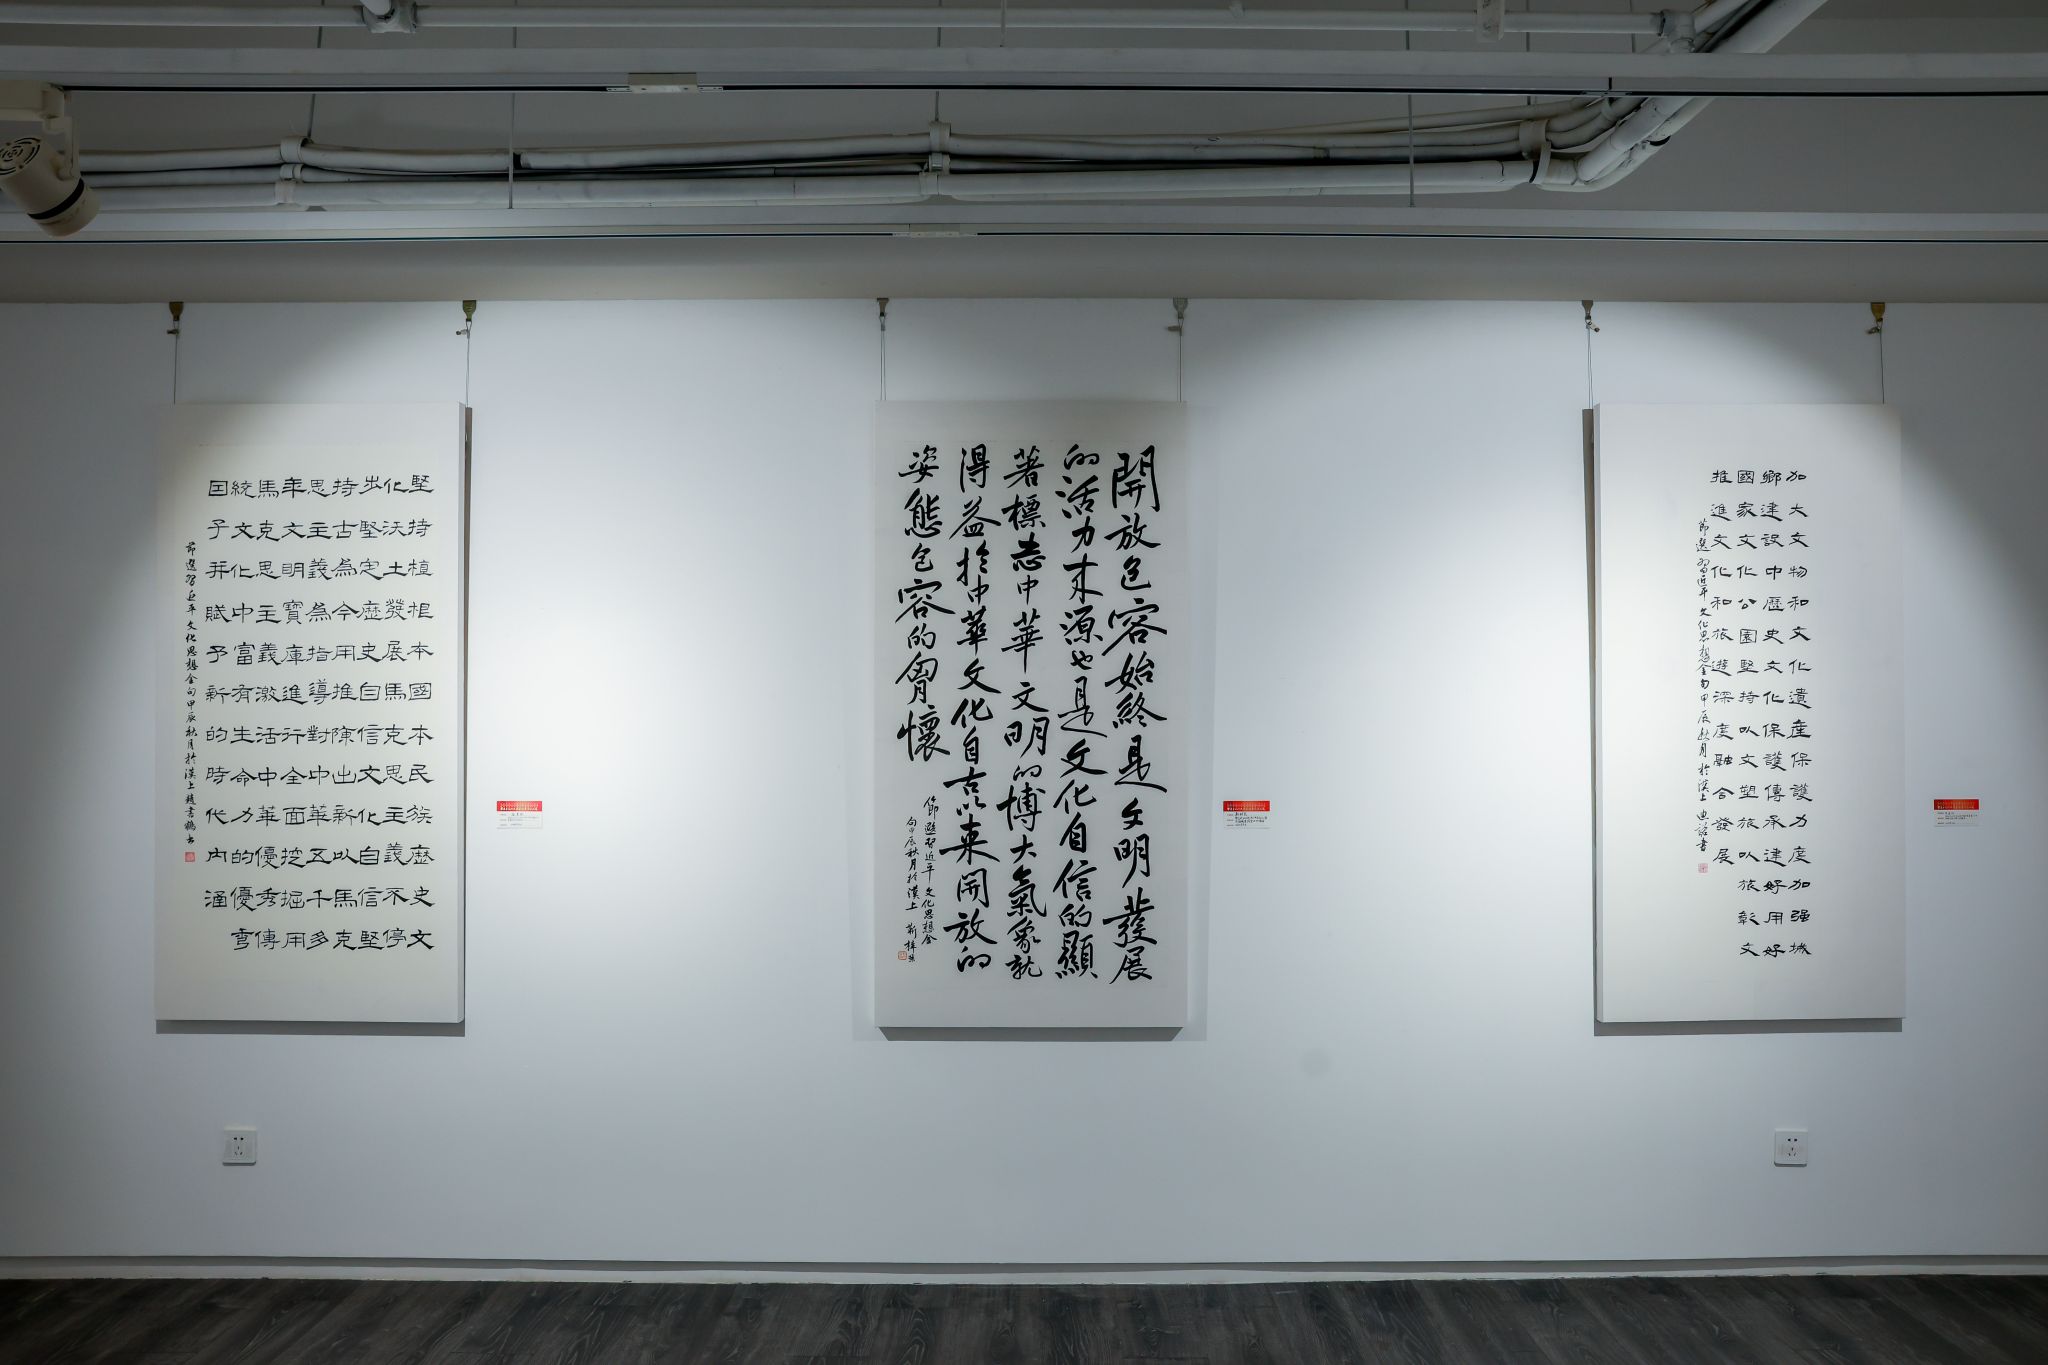 堅持植根本國本民族歷史文
化沃土發展馬克思主義不停
步堅定歷史自信文化自信堅
持古為今用推陳出新以馬克
思主義為指導對中華五千多
年文明寶庫進行全面挖掘用
馬克思主義激活中華優秀傳
統文化中富有生命力的優秀
囙子并賦予新的時代内涵
節選習近平文化思想金句甲辰秋月於漢上趙書
開放包容始終是文明發展
的活力來源也是文化自信的顯
著標志中華文明的博大氣象就
得益於中華文化自古以來開放的
姿態包容的胷懷
節選習近平文化思想金
句甲辰秋月於漢上
加大文物和文化遺產保護力度加强城
鄉建設中歷史文化保護傳承建好用好
國家文化公園堅持以文塑旅以旅彰文
推進文化和旅遊深度融合發展
節選習近平文化思想金句甲辰秋月於漢上